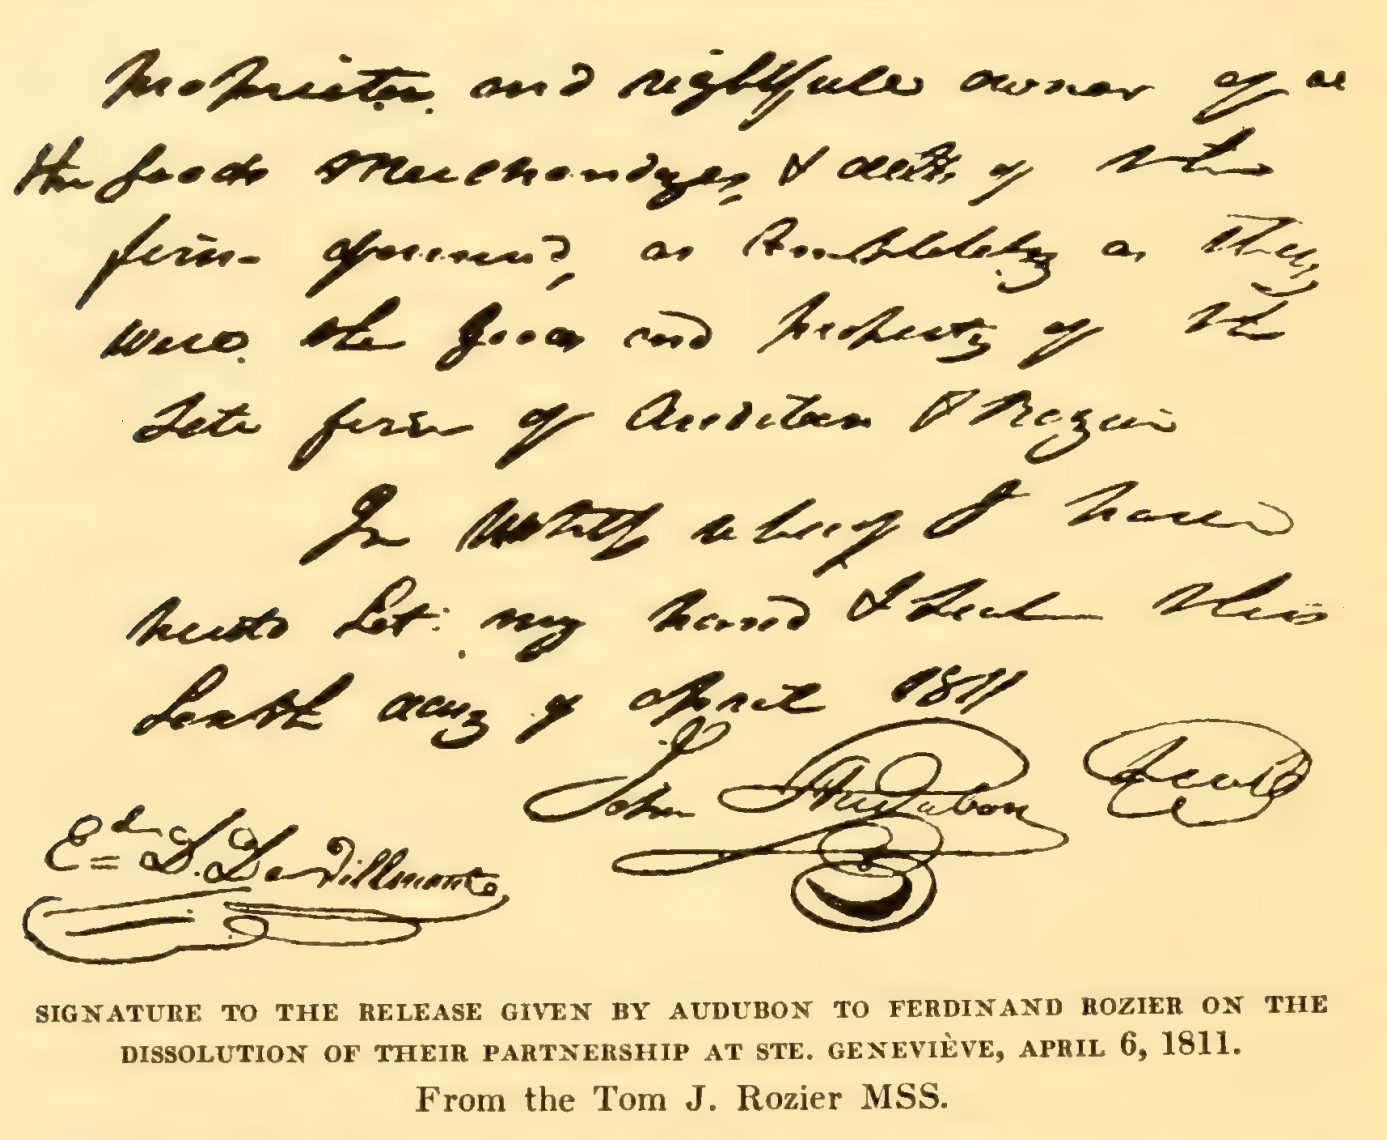 proprietor and rightfule owner of al
the goods Merchandizes, & debts of the
firm afores
as they
were the goods and property of the
Late firm of Audubon & Rozier
In whereof I have
hereto Set my hand & Seal this
Sixth day of April 1811
John Audubon Seal
Ed D. DeVillmonte
SIGNATURE TO THE RELEASE GIVEN BY AUDUBON TO FERDINAND ROZIER ON THE
DISSOLUTION OF THEIR PARTNERSHIP AT STE. GENEVIÈVE, APRIL 6, 1811.
From the Tom J. Rozier MSS.